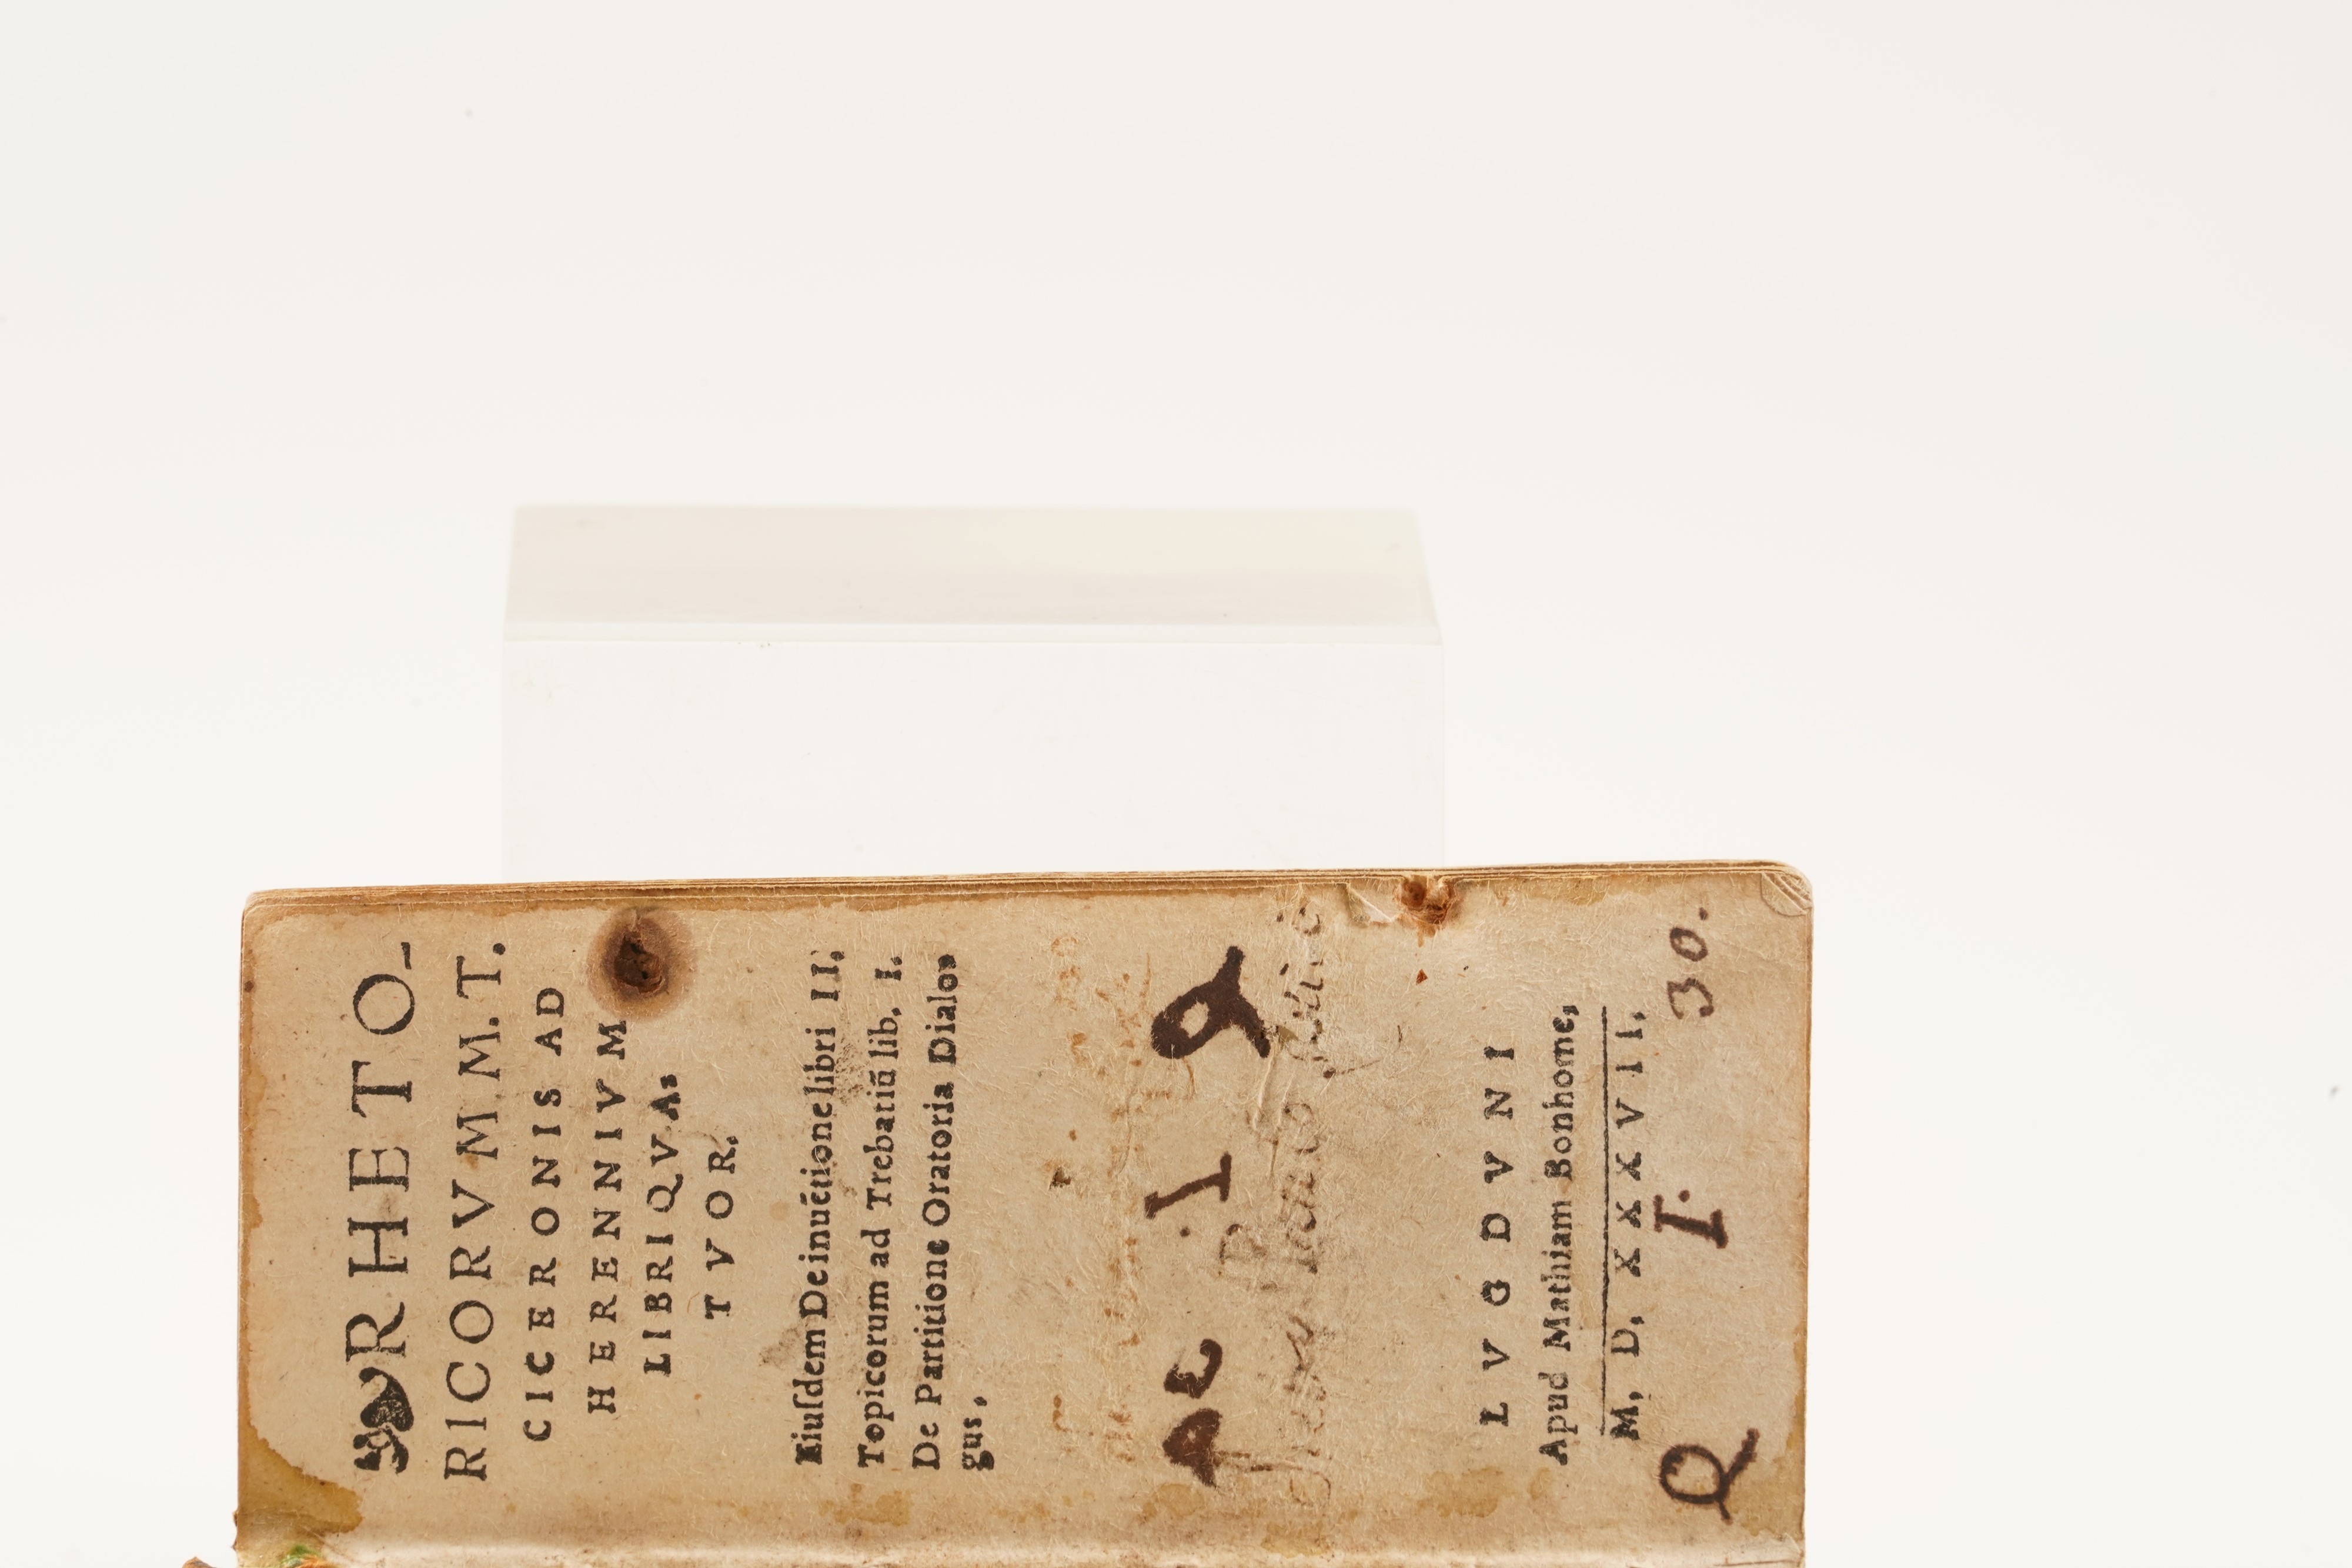 ❦RHETO-
RICORVM M. T.
CICERONIS AD
HERENNIVM
LIBRI QVA=
TVOR.
Eiuſdem De inuẽtione libri II.
Topicorum ad Trebatiũ lib. I.
De Partitione Oratoria Dialo=
gus,
LVGDVNI
Apud Mathiam Bonhome,
M, D, XXXVII,
Q I. 30.